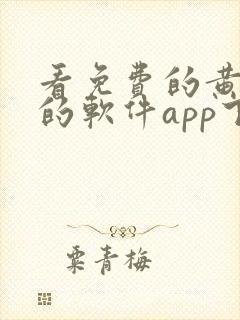 看免費的黄
的軟件app下
粟青梅